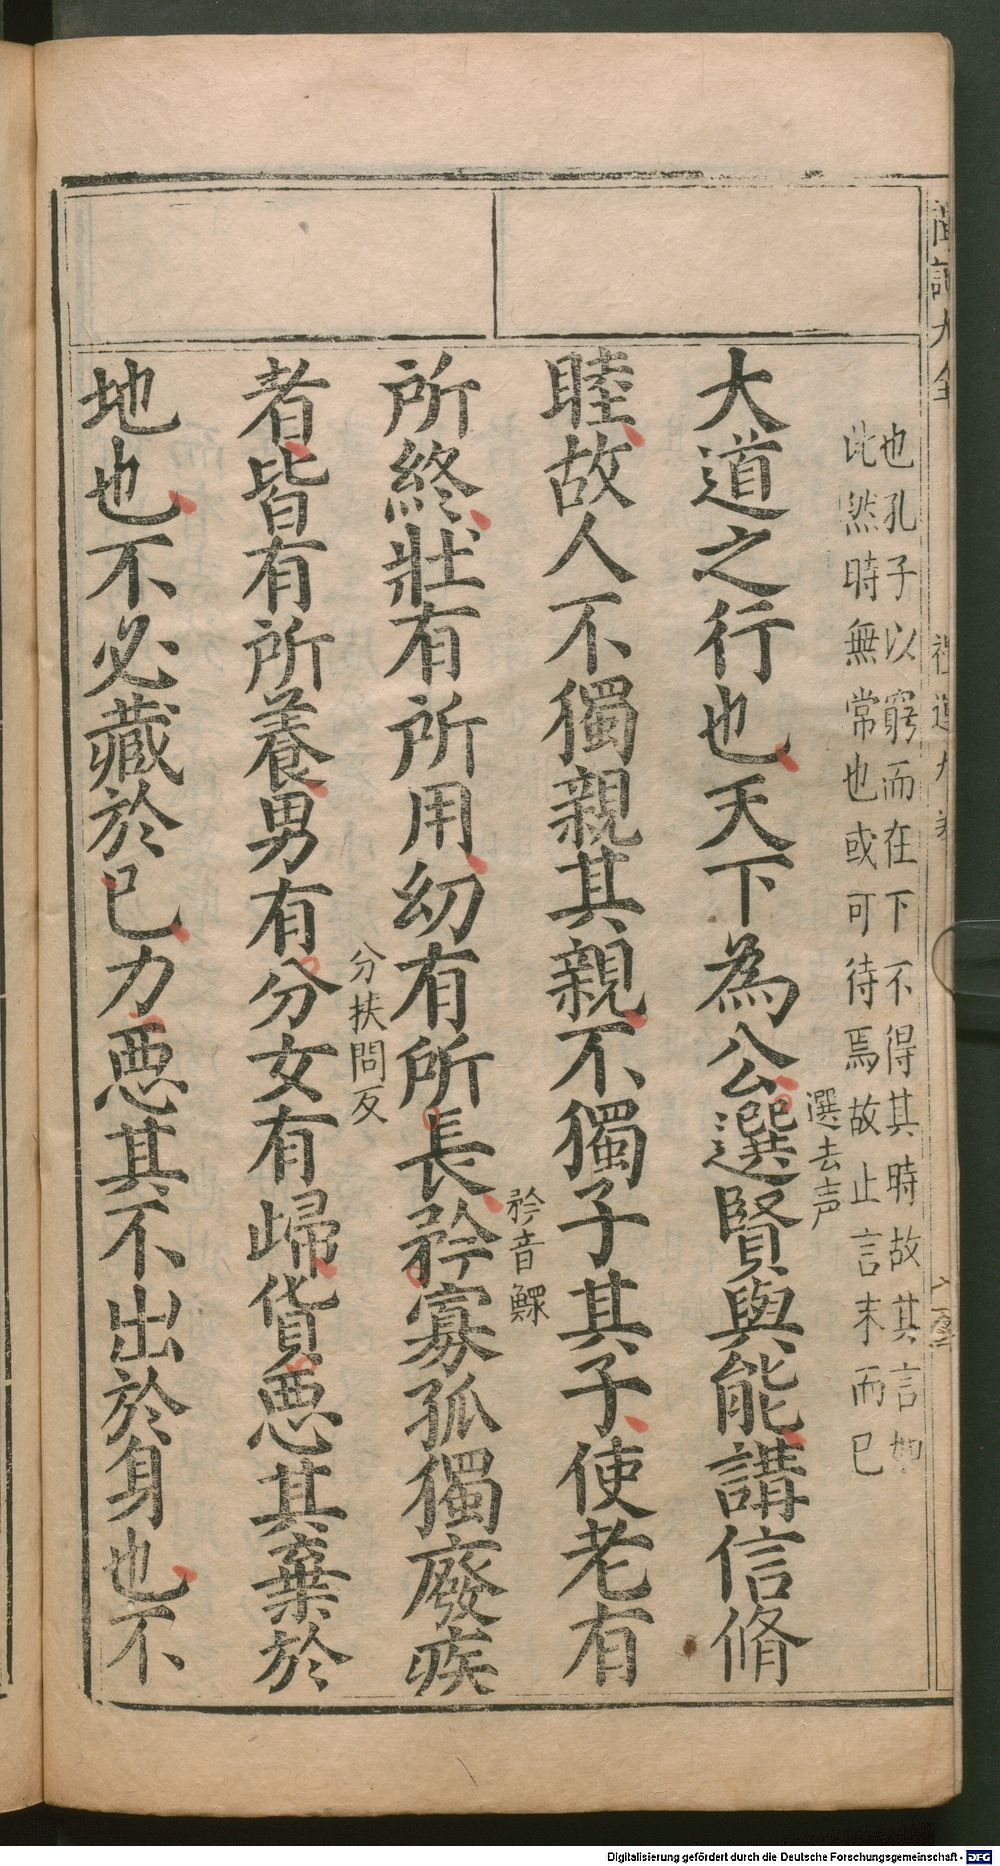 也孔子以窮而在下不得其時故其言如
此然時無常也或可待焉故止言末而已
大道之行也天下為公選賢與能講信脩
選去声
睦故人不獨親其親不獨子其子使老有
所終壯有所用幼有所長矜寡孤獨廢疾
矜音鰥
者皆有所養男有分女有歸貨惡其棄於
分扶問反
地也不必藏於己力惡其不出於身也不
Digitalisierung gefördert durch die Deutsche Forschungsgemeinschaft - DFG